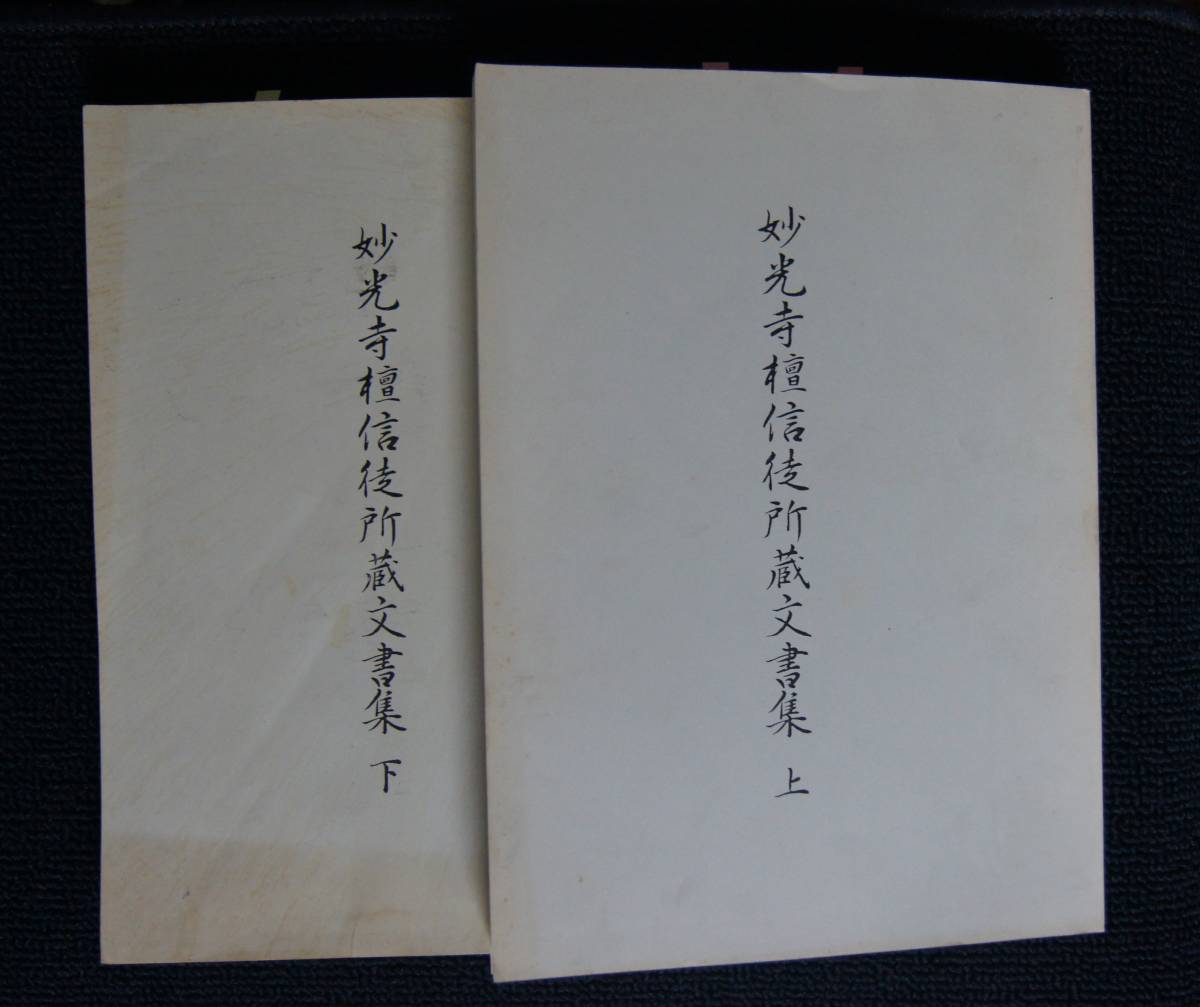 妙光寺檀信徒所蔵文書集 上
妙光寺檀信徒所蔵文書集 下